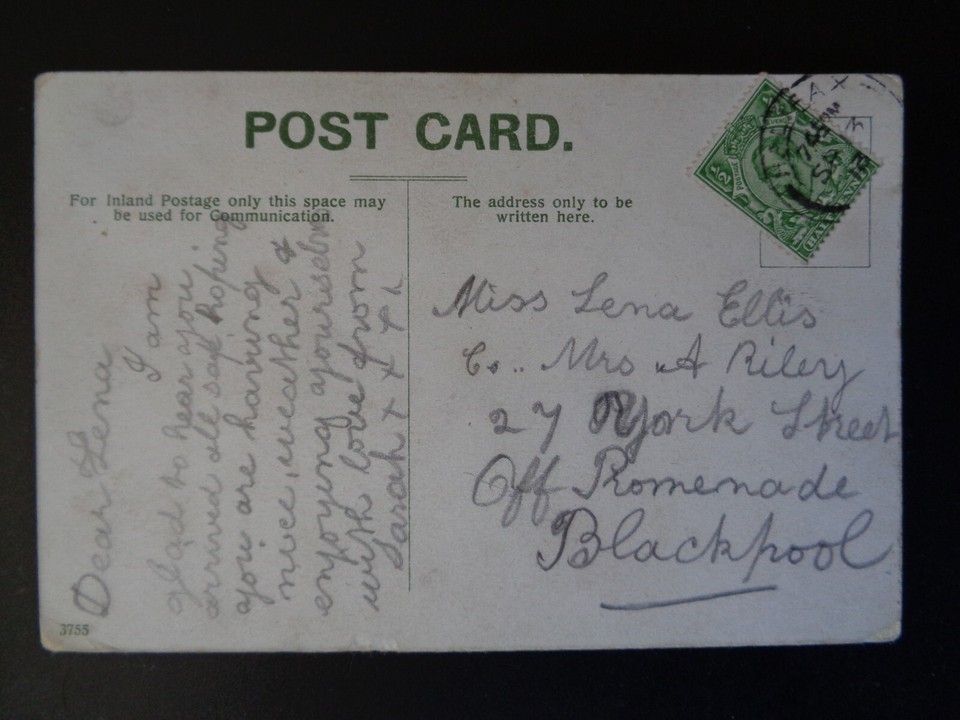 POST CARD.
For Inland Postage only this space may
be used for Communication.
The address only to be
written here.
Dear Lena
I am
glad to hear you
arrived all safe hoping
you are having
nice weather &
enjoying yourself
with love from
Sarah x x x x
Miss Lena Ellis
Co.. Mrs A Riley
27 York Street
Off Promenade
Blackpool
3755